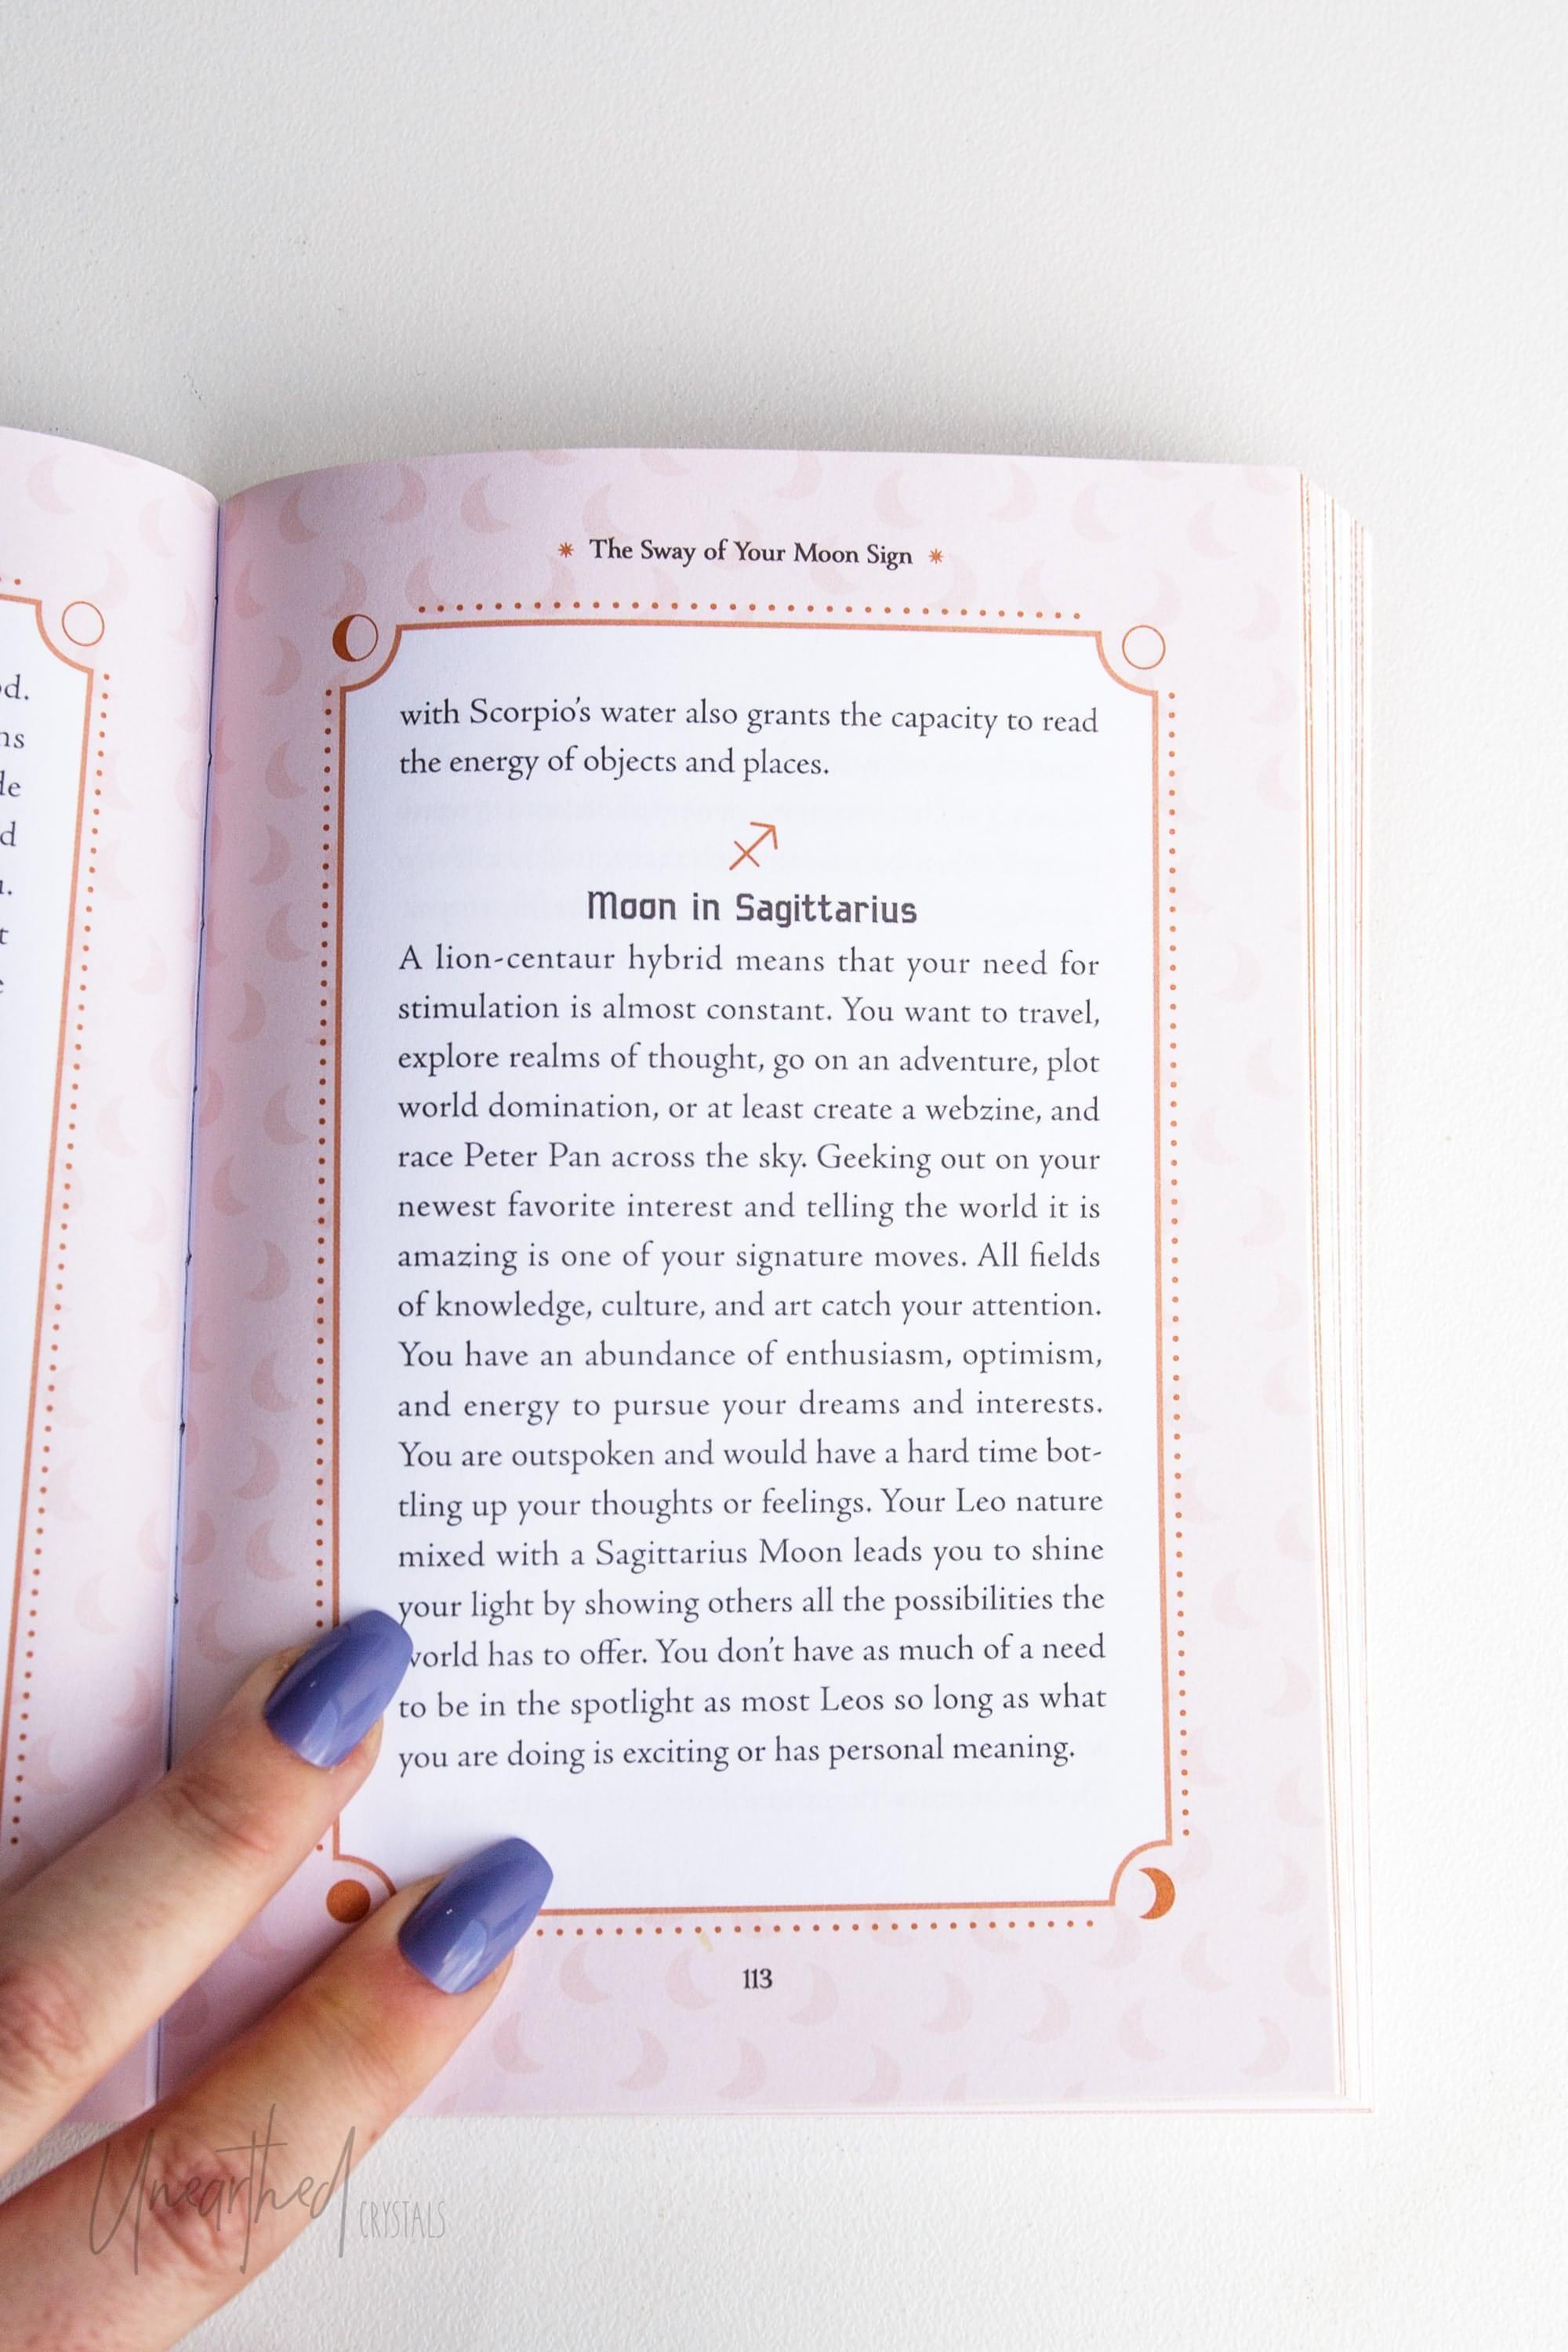 d.
ns
de
d
t
* The Sway of Your Moon Sign *
with Scorpio's water also grants the capacity to read
the energy of objects and places.
♐
Moon in Sagittarius
A lion-centaur hybrid means that your need for
stimulation is almost constant. You want to travel,
explore realms of thought, go on an adventure, plot
world domination, or at least create a webzine, and
race Peter Pan across the sky. Geeking out on your
newest favorite interest and telling the world it is
amazing is one of your signature moves. All fields
of knowledge, culture, and art catch your attention.
You have an abundance of enthusiasm, optimism,
and energy to pursue your dreams and interests.
You are outspoken and would have a hard time bot-
tling up your thoughts or feelings. Your Leo nature
mixed with a Sagittarius Moon leads you to shine
your light by showing others all the possibilities the
world has to offer. You don't have as much of a need
to be in the spotlight as most Leos so long as what
you are doing is exciting or has personal meaning.
113
Unearthed CRYSTALS